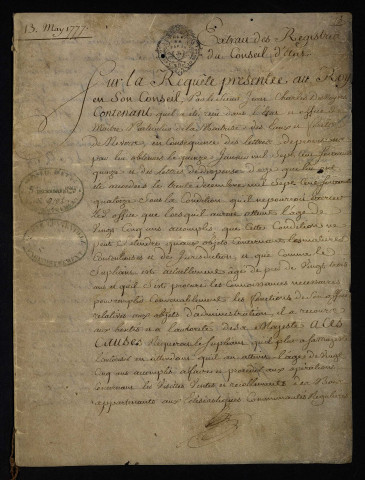 13. May 1777.
Extrait des Registres
du Conseil d'Etat
Sur la Requête presentée au Roy
en son Conseil Par le Sieur
Contenant qu'il a été reçu dans l'état et office de
Maitre Particulier de la Maitrise des Eaux et forets
de en consequence des lettres de provision
par lui obtenues le quinze Janvier mil Sept Cent soixante
quinze et des lettres de dispense d'age que lui ont
été accordées le trente decembre mil Sept Cent soixante
quatorze Sous la Condition qu'il ne pourroit exercer
led. office que lorsqu'il auroit atteint l'age de
Vingt Cinq ans accomplis que cette Condition ne
peut s'etendre qu'aux objets
Contentieux et de Jurisdiction et que comme le
Supliant est actuellement agé de près de Vingt trois
ans et qu'il s'est procuré les Connoissances necessaires
pour remplir convenablement les fonctions de son office
relatives aux objets d'administration, il a recours
aux bontés et a l'autorité de Sa Majesté A Ces
Causes Requeroit le Supliant qu'il plut a Sa Majesté
l'autoriser en attendant qu'il ait atteint l'age de Vingt
Cinq ans accomplis a faire et proceder aux operations
concernant les Visites Ventes et recollements des Bois
appartenants aux Eclesiastiques Communautés Regulieres